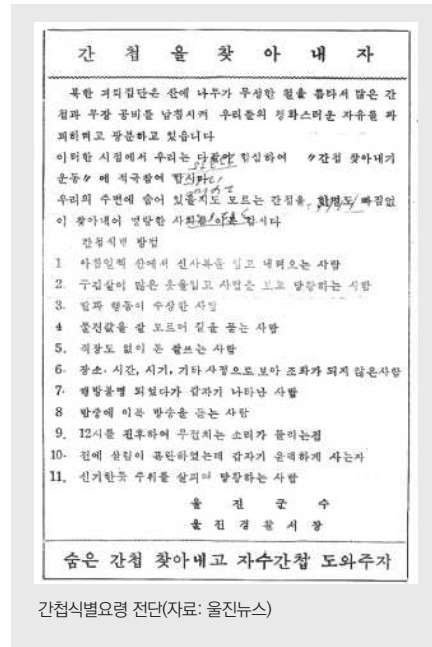 간첩을 찾아내자
북한 괴뢰집단은 산에 나무가 무성한 철을 틈타서 많은 간
첩과 무장 공비를 남침시켜 우리들의 평화스러운 자유를 파
괴하려고 광분하고 있읍니다
이러한 시점에서 우리는 다같이 합심하여 〃간첩 찾아내기
운동〃에 적극참여 합시다
우리의 주변에 숨어 있을지도 모르는 간첩을 한명도 빠짐없
이 찾아내어 명랑한 사회를 이룩 합시다
간첩식별 방법
1 아침일찍 산에서 신사복을 입고 내려오는 사람
2. 구김살이 많은 옷을입고 사람을 보고 당황하는 사람
3. 말과 행동이 수상한 사람
4 물건값을 잘 모르며 길을 묻는 사람
5. 직장도 없이 돈 잘쓰는 사람
6. 장소. 시간, 시기, 기타 사정으로 보아 조화가 되지 않은사람
7. 행방불명 되었다가 갑자기 나타난 사람
8 밤중에 이북 방송을 듣는 사람
9. 12시를 전후하여 무전치는 소리가 들리는점
10. 전에 살림이 곤란하였는데 갑자기 윤택하게 사는자
11. 신기한듯 주위를 살피며 당황하는 사람
울진군수
울진경찰서장
숨은 간첩 찾아내고 자수간첩 도와주자
간첩식별요령 전단(자료: 울진뉴스)